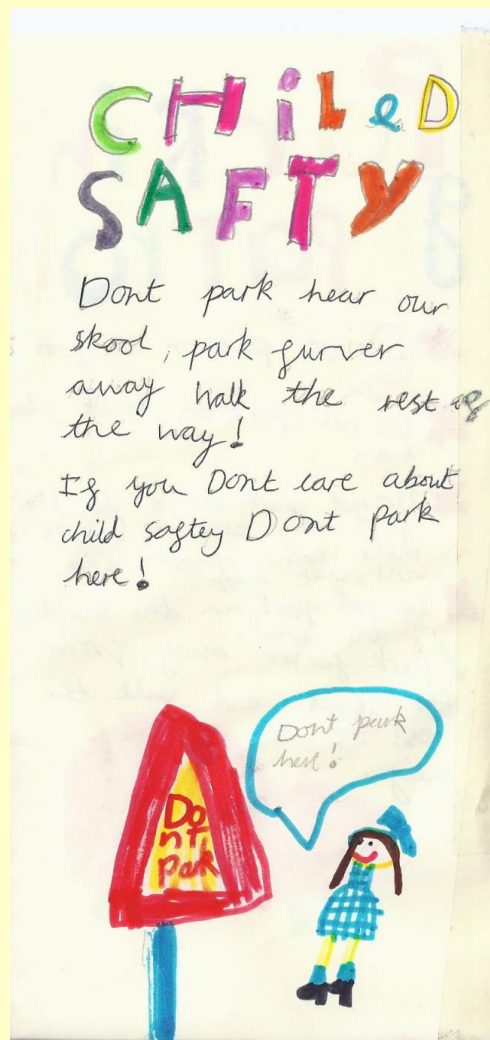 CHiLeD
SAFTY
Dont park hear our
skool, park furver
away walk the rest of
the way!
If you Dont care about
child saftey Dont park
here!
Dont park
here!
Do
nt
park